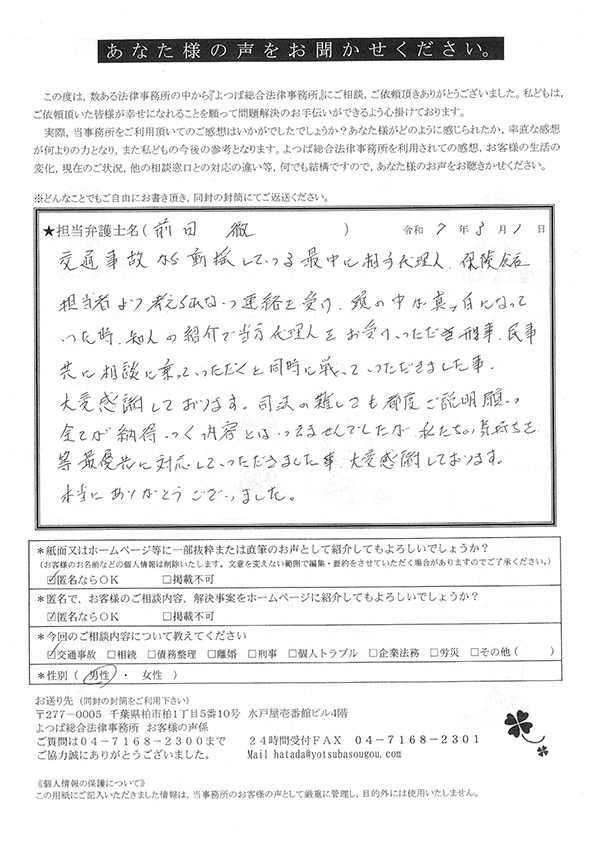 あなた様の声をお聞かせください。
この度は，数ある法律事務所の中から『よつば総合法律事務所』にご相談，ご依頼頂きありがとうございました。私どもは，
ご依頼頂いた皆様が幸せになれることを願って問題解決のお手伝いができるよう心掛けております。
実際，当事務所をご利用頂いてのご感想はいかがでしたでしょうか？あなた様がどのように感じられたか，率直な感想
が何よりの力となり，また私どもの今後の参考となります。よつば総合法律事務所を利用されての感想，お客様の生活の
変化，現在のご状況，他の相談窓口との対応の違い等，何でも結構ですので，あなた様のお声をお聴きかせください。
※どんなことでもご自由にお書き頂き，同封の封筒にてご返送ください。
★担当弁護士名（前田 徹）令和 7 年 3 月 1 日
交通事故から動揺している最中に相手代理人、保険会社
担当者より考えられない連絡を受け、頭の中が真っ白になって
いった時、知人の紹介で当方代理人をお受けいただき刑事、民事
共に相談に乗っていただくと同時に戦っていただきました事、
大変感謝しております。司法の難しさも都度ご説明願い
全てが納得いく内容とはいえませんでしたが、私たちの気持ちを
等最優先に対応していただきました事、大変感謝しております。
本当にありがとうございました。
＊紙面又はホームページ等に一部抜粋または直筆のお声として紹介してもよろしいでしょうか？
（お客様のお名前などの個人情報は削除いたします。文意を変えない範囲で編集・要約をさせていただく場合がありますのでご了承ください。）
☑匿名ならＯＫ □掲載不可
＊匿名で，お客様のご相談内容，解決事案をホームページに紹介してもよろしいでしょうか？
☑匿名ならＯＫ □掲載不可
＊今回のご相談内容について教えてください
☑交通事故 □相続 □債務整理 □離婚 □刑事 □個人トラブル □企業法務 □労災 □その他（ ）
＊性別（ 男性 ・ 女性 ）
お送り先（同封の封筒をご利用下さい）
〒277-0005 千葉県柏市柏1丁目5番10号 水戸屋壱番館ビル4階
よつば総合法律事務所 お客様の声係
ご質問は０４-７１６８-２３００まで ２４時間受付ＦＡＸ ０４-７１６８-２３０１
ご協力誠にありがとうございました。 Mail hatada@yotsubasougou.com
《個人情報の保護について》
この用紙にご記入いただきました情報は，当事務所のお客様の声として厳重に管理し，目的外には使用いたしません。